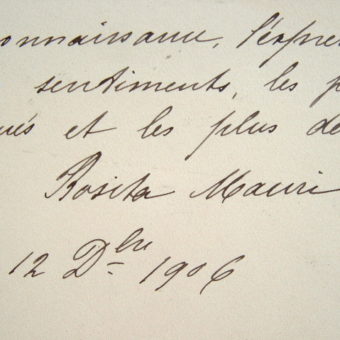 onnaissance, l'expre
sentiments, les p
ués et les plus de
Rosita Mauri
12 Dbre 1906